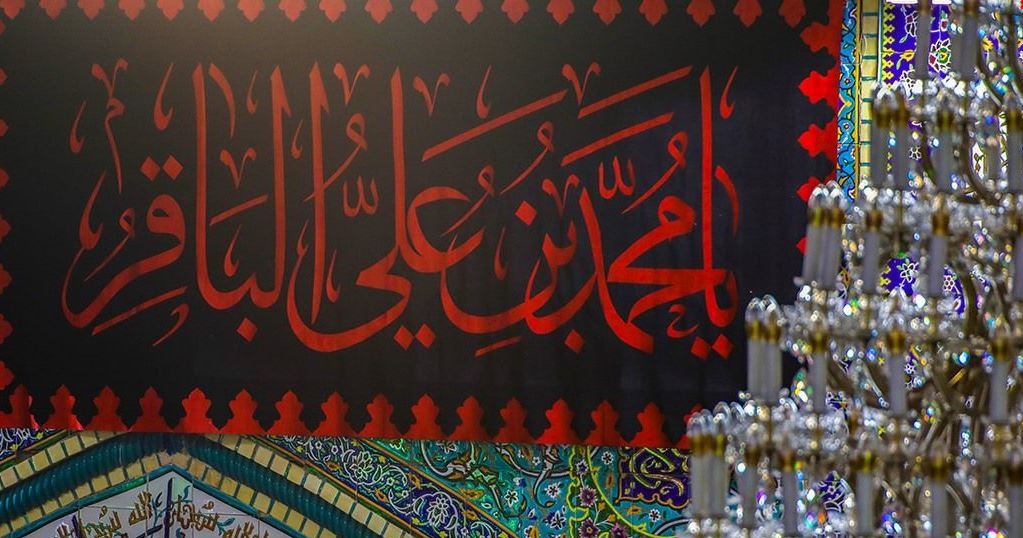 يا مُحَمَّدَ بنَ عَلِيٍّ الباقِرِ